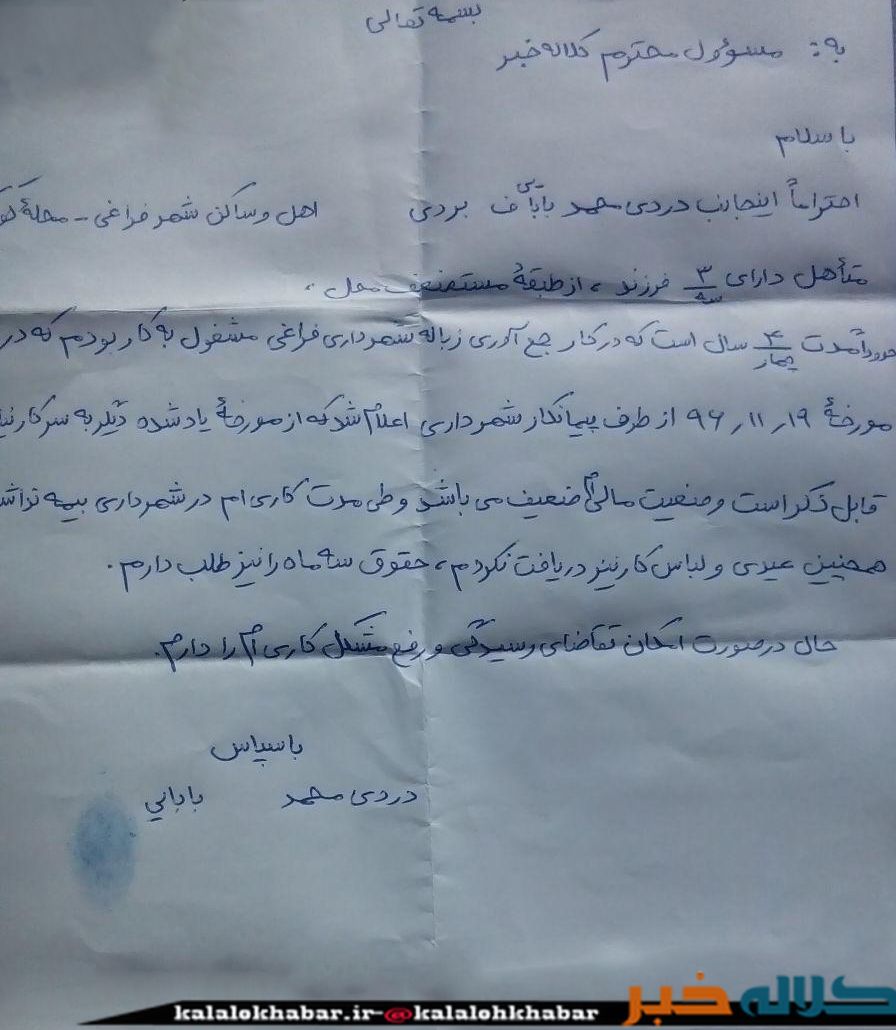 بسمه تعالی
به: مسؤول محترم کلاله خبر
با سلام
احتراماً اینجانب دردی محمد بابائی ف بردی اهل و ساکن شهر فراغی - محلهٔ
متأهل دارای ۳ سه فرزند ، از طبقهٔ مستضعف محل ،
حدوداً مدت ۴ چهار سال است که در کار جمع آوری زباله شهرداری فراغی مشغول به کار بودم که در
مورخهٔ ۹۶/۱۱/۱۹ از طرف پیمانکار شهرداری اعلام شد که از مورخهٔ یاد شده دیگر به سرکار
قابل ذکر است وضعیت مالی ام ضعیف می باشد و طی مدت کاری ام در شهرداری بیمه
همچنین عیدی و لباس کار نیز دریافت نکردم ، حقوق سه ماه را نیز طلب دارم .
حال در صورت امکان تقاضای رسیدگی و رفع مشکل کاری ام را دارم .
با سپاس
دردی محمد بابایی
kalalokhabar.ir-@kalalohkhabar
کلاله خبر